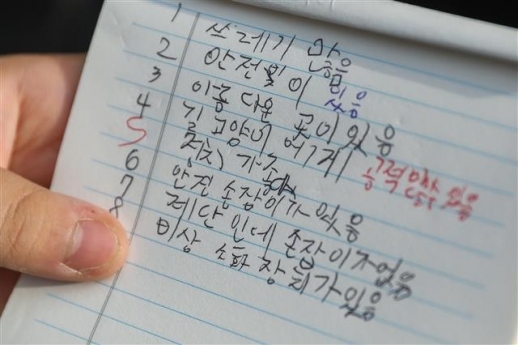 1 쓰레기 많음
2 안전 빛이 있음
3 이름 다운 곳이 있음
4 길 고양이 여기저기
5 경치 가중 공격 많이 있음
6 안전 손잡이가 있음
7 계단 인에 손잡이가 없음
8 비상 소화 장치가 있음